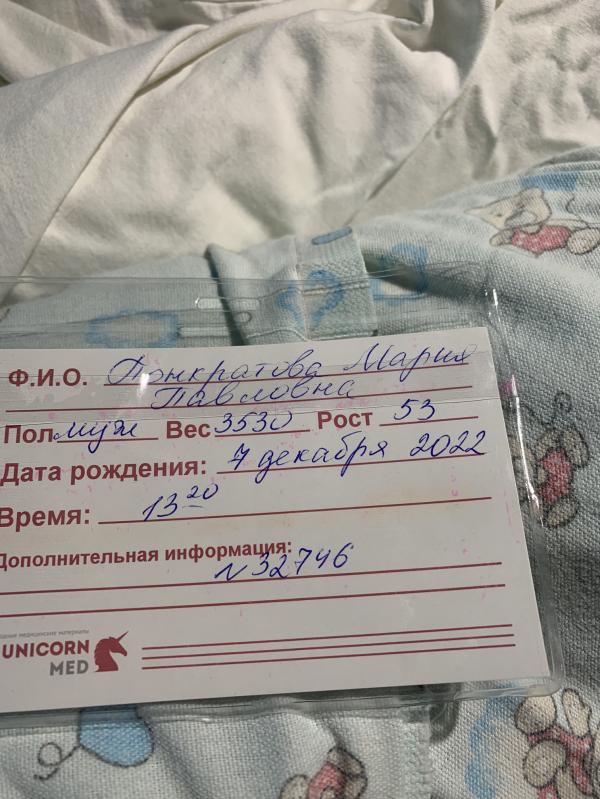 Ф.И.О. Панкратова Мария
Павловна
Пол муж Вес 3530 Рост 53
Дата рождения: 7 декабря 2022
Время: 13 20
Дополнительная информация:
N 32746
медицинские материалы
UNICORN
MED